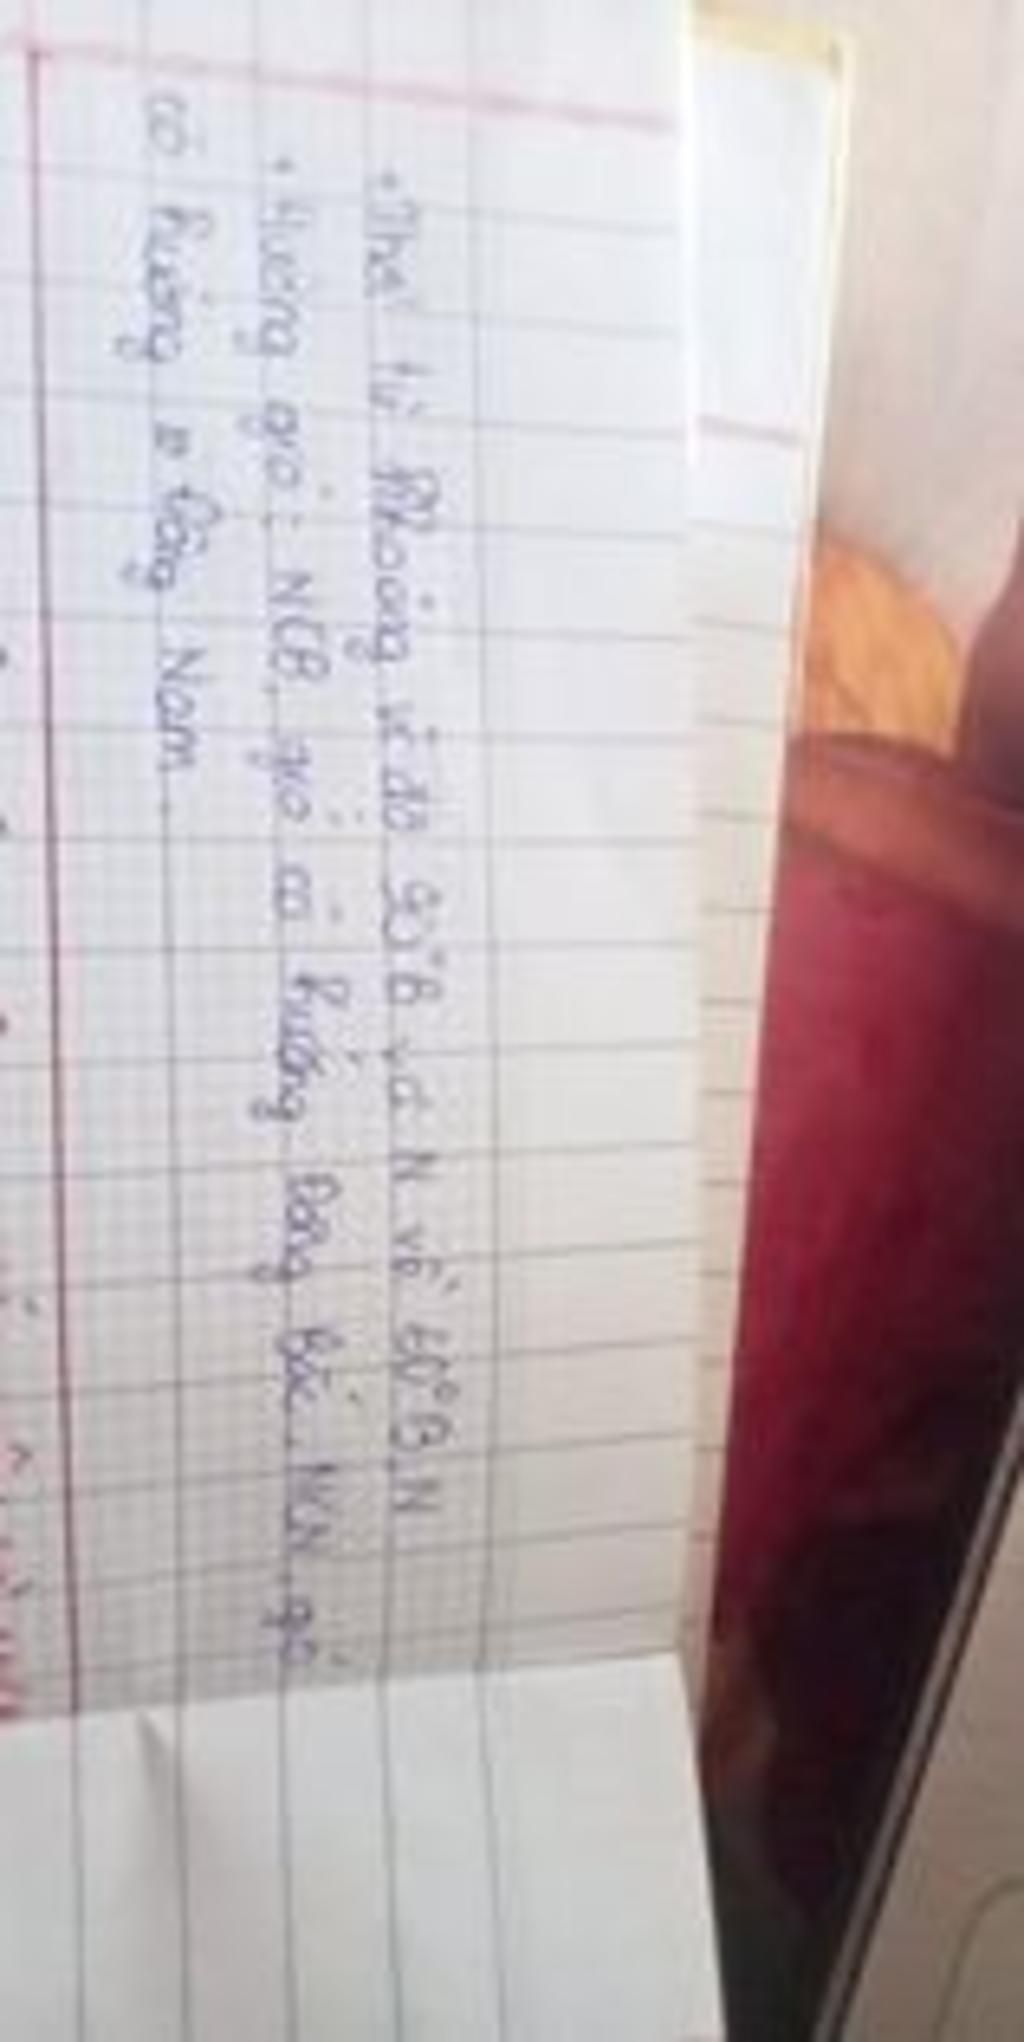 + Thổi từ khoảng vĩ độ 90°B và N về 60°B,N
+ Hướng gió: NCB, gió có hướng Đông Bắc, NCN gió
có hướng Đông Nam.